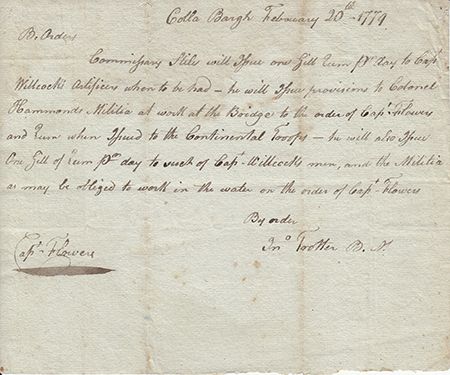 Colla Bargh February 20th 1779
B. Orders
Commissary Stiles will Issue one Gill Rum pr Day to Capt
Willcocks Artificers when to be had – he will Issue provisions to Colonel
Hammonds Militia at work at the Bridge to the order of Capt Flowers
and Rum when Issued to the Continental Troops – he will also Issue
One Gill of Rum pr day to such of Capt Willcocks men, and the Militia
as may be obliged to work in the water on the order of Capt Flowers
By order
Jno Trotter B. M.
Capt Flowers